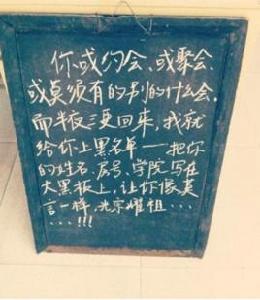 你或约会、或聚会
或莫须有的别的什么会,
而半夜三更回来,我就
给你上黑名单——把你
的姓名、房号、学院写在
大黑板上,让你像莫
言一样,光宗耀祖…
…!!!